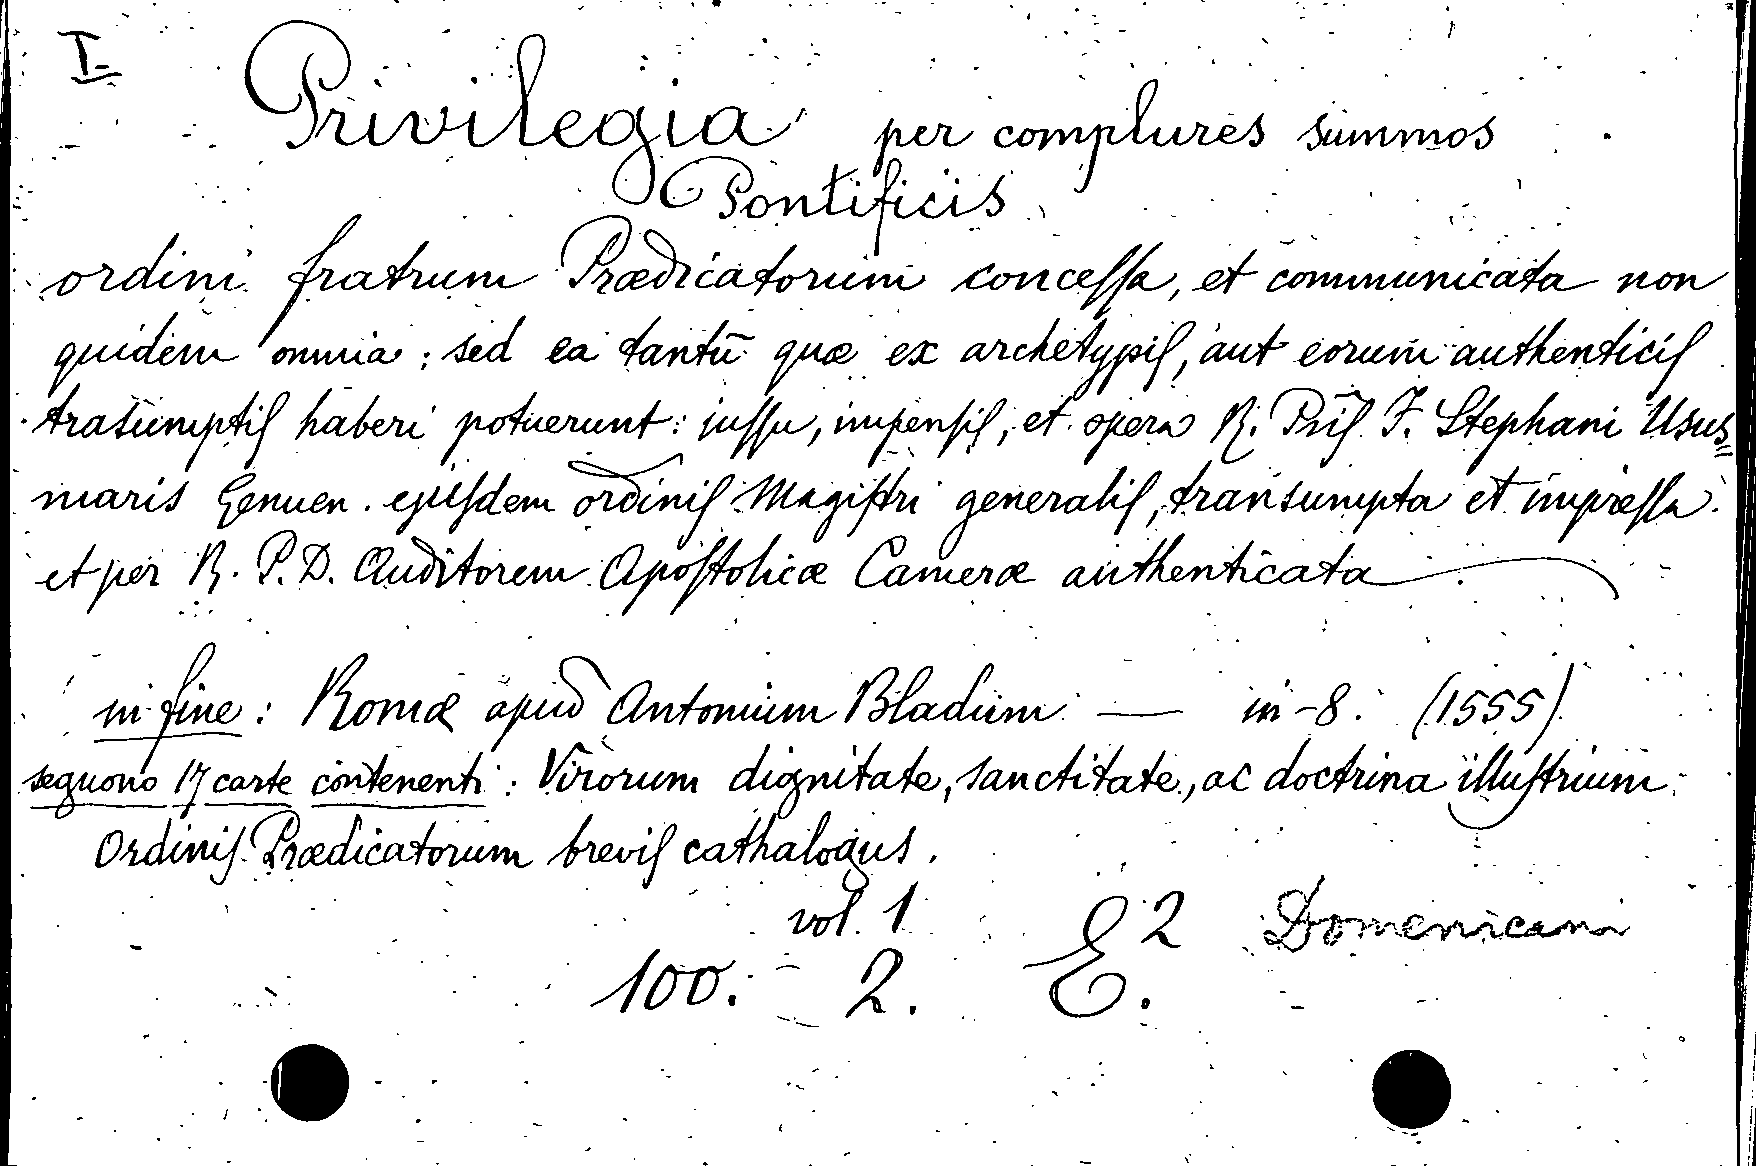 I.
Privilegia per complures summos
Pontificis
ordini fratrum Prædicatorum conceſſa, et communicata non
quidem omnia: sed ea tantū quæ ex archetypiſ, aut eorum authenticiſ
trasumptiſ haberi potuerunt: iuſſu, impenſiſ, et opera R. Prīſ F. Stephani Usus=
maris Genuen. ejuſdem ordiniſ Magiſtri generaliſ, transumpta et impreſſa.
et per R. P. D. Auditorem Apoſtolicæ Cameræ authenticata
in fine: Romæ apud Antonium Bladum — in-8. (1555)
seguono 17 carte contenenti: Virorum dignitate, sanctitate, ac doctrina illuſtrium
Ordiniſ Prædicatorum breviſ cathalogus.
vol. 1 E 2 Domenicani
100. 2. E.